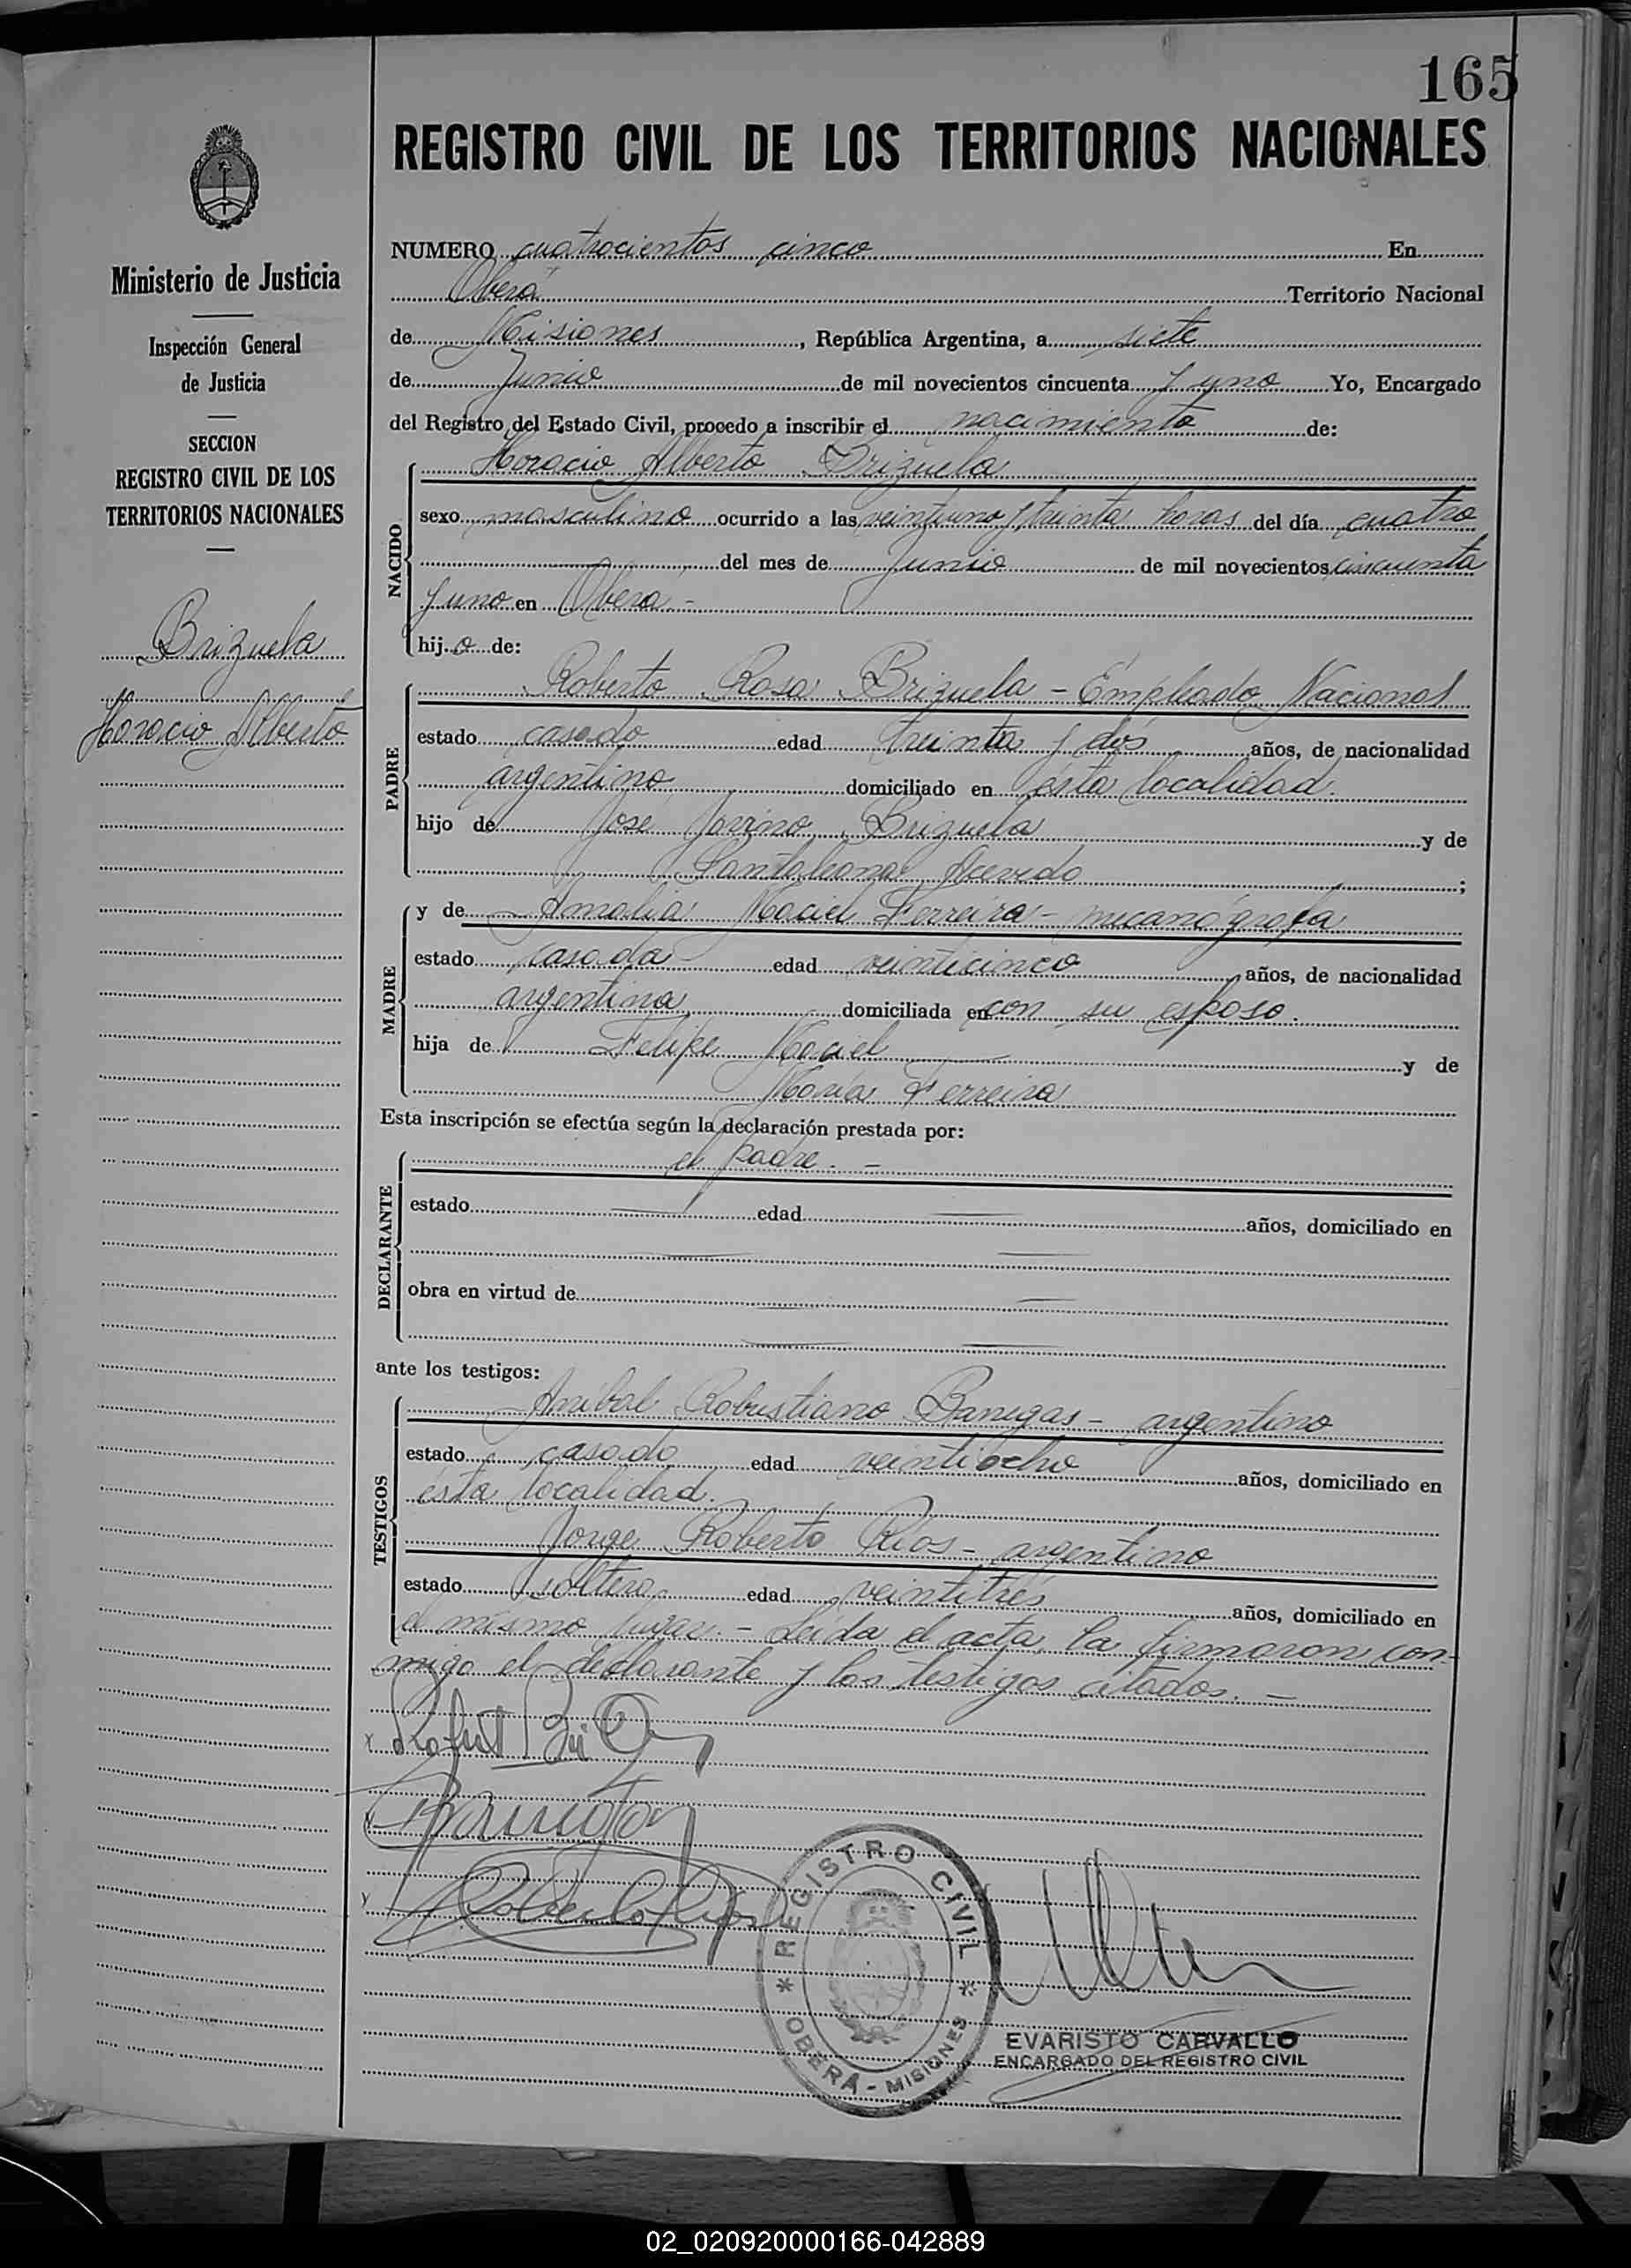 165
REGISTRO CIVIL DE LOS TERRITORIOS NACIONALES
Ministerio de Justicia
Inspección General
de Justicia
SECCION
REGISTRO CIVIL DE LOS
TERRITORIOS NACIONALES
Brizuela
Horacio Alberto
NUMERO cuatrocientos cinco En
Oberá Territorio Nacional
de Misiones, República Argentina, a siete
de Junio de mil novecientos cincuenta y uno Yo, Encargado
del Registro del Estado Civil, procedo a inscribir el nacimiento de:
NACIDO
Horacio Alberto Brizuela
sexo masculino ocurrido a las veintiuno y treinta horas del día cuatro
del mes de Junio de mil novecientos cincuenta
y uno en Oberá -
hijo de:
PADRE
Roberto Rosa Brizuela - Empleado Nacional
estado casado edad treinta y dós años, de nacionalidad
argentino domiciliado en ésta localidad.
hijo de José Brizuela y de
Acevedo;
MADRE
y de Amalia Maciel Ferreira - mecanógrafa
estado casada edad veinticinco años, de nacionalidad
argentina domiciliada en con su esposo.
hija de Felipe Maciel y de
María Ferreira
Esta inscripción se efectúa según la declaración prestada por:
DECLARANTE
el padre. -
estado edad años, domiciliado en
obra en virtud de
ante los testigos:
TESTIGOS
Anibal Robustiano Banegas - argentino
estado casado edad veintiocho años, domiciliado en
ésta localidad.
Jorge Roberto Ríos - argentino
estado soltero edad veintitrés años, domiciliado en
el mismo lugar. - Leída el acta, la firmaron con-
migo el declarante y los testigos citados. -
REGISTRO CIVIL
* OBERÁ - MISIONES *
EVARISTO CARVALLO
ENCARGADO DEL REGISTRO CIVIL
02_020920000166-042889